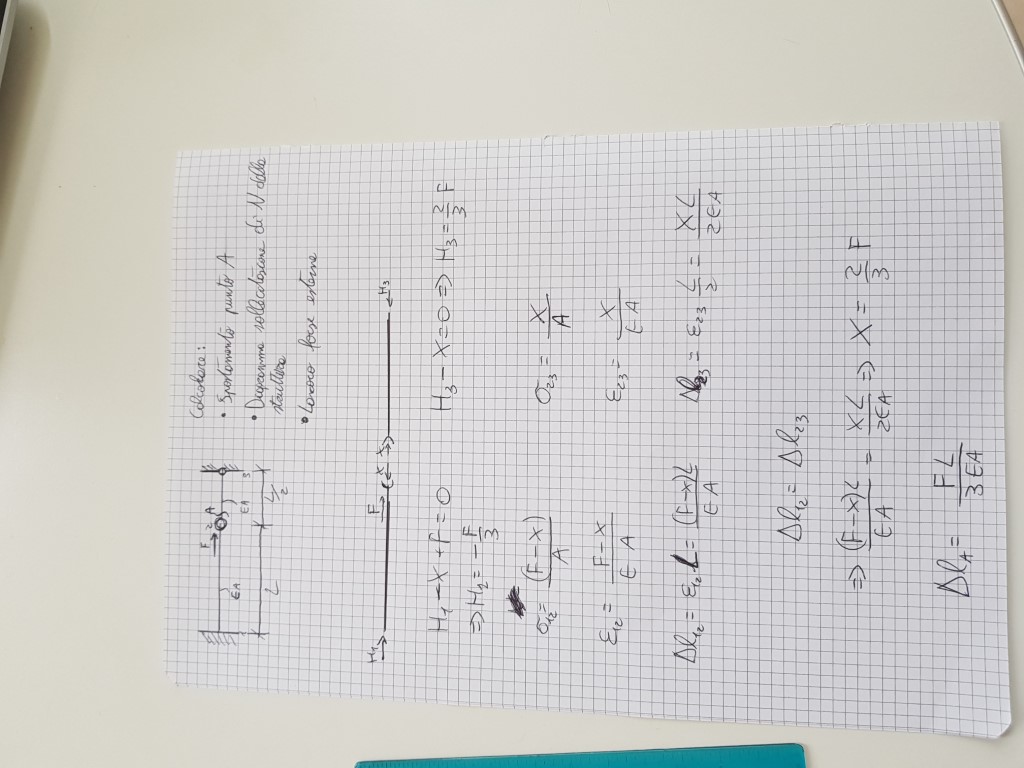 Calcolare:
• Spostamento punto A
• Diagramma sollecitazione di N della
struttura
• Lavoro forze esterne
F 2 A
EA EA 3
L L/2
H₁ F X X H₃
H₁ - X + F = 0 H₃ - X = 0 ⇒ H₃ = 2/3 F
⇒ H₂ = - F/3
σ₁₂ = (F-X)/A σ₂₃ = X/A
ε₁₂ = F-X/EA ε₂₃ = X/EA
Δl₁₂ = ε₁₂ L = (F-X)L/EA Δl₂₃ = ε₂₃ L/2 = XL/2EA
Δl₁₂ = Δl₂₃
⇒ (F-X)L/EA = XL/2EA ⇒ X = 2/3 F
Δl_A = FL/3EA